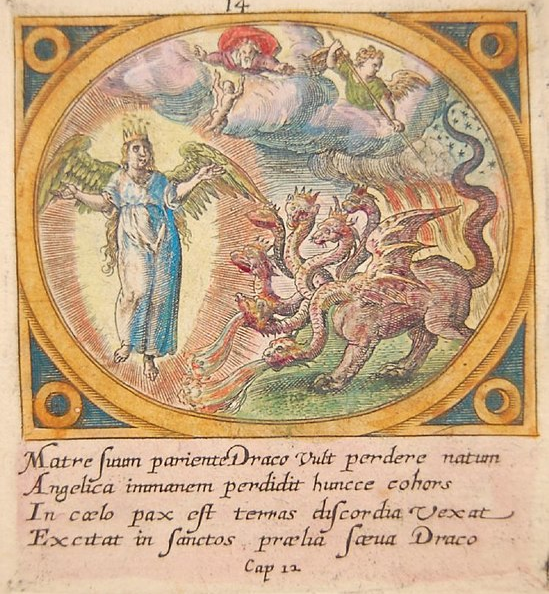 14
Matre ſuum pariente Draco Vult perdere natum
Angelica immanem perdidit huncce cohors
In cœlo pax eſt terras diſcordia vexat
Excitat in ſanctos prælia ſæua Draco
Cap 12